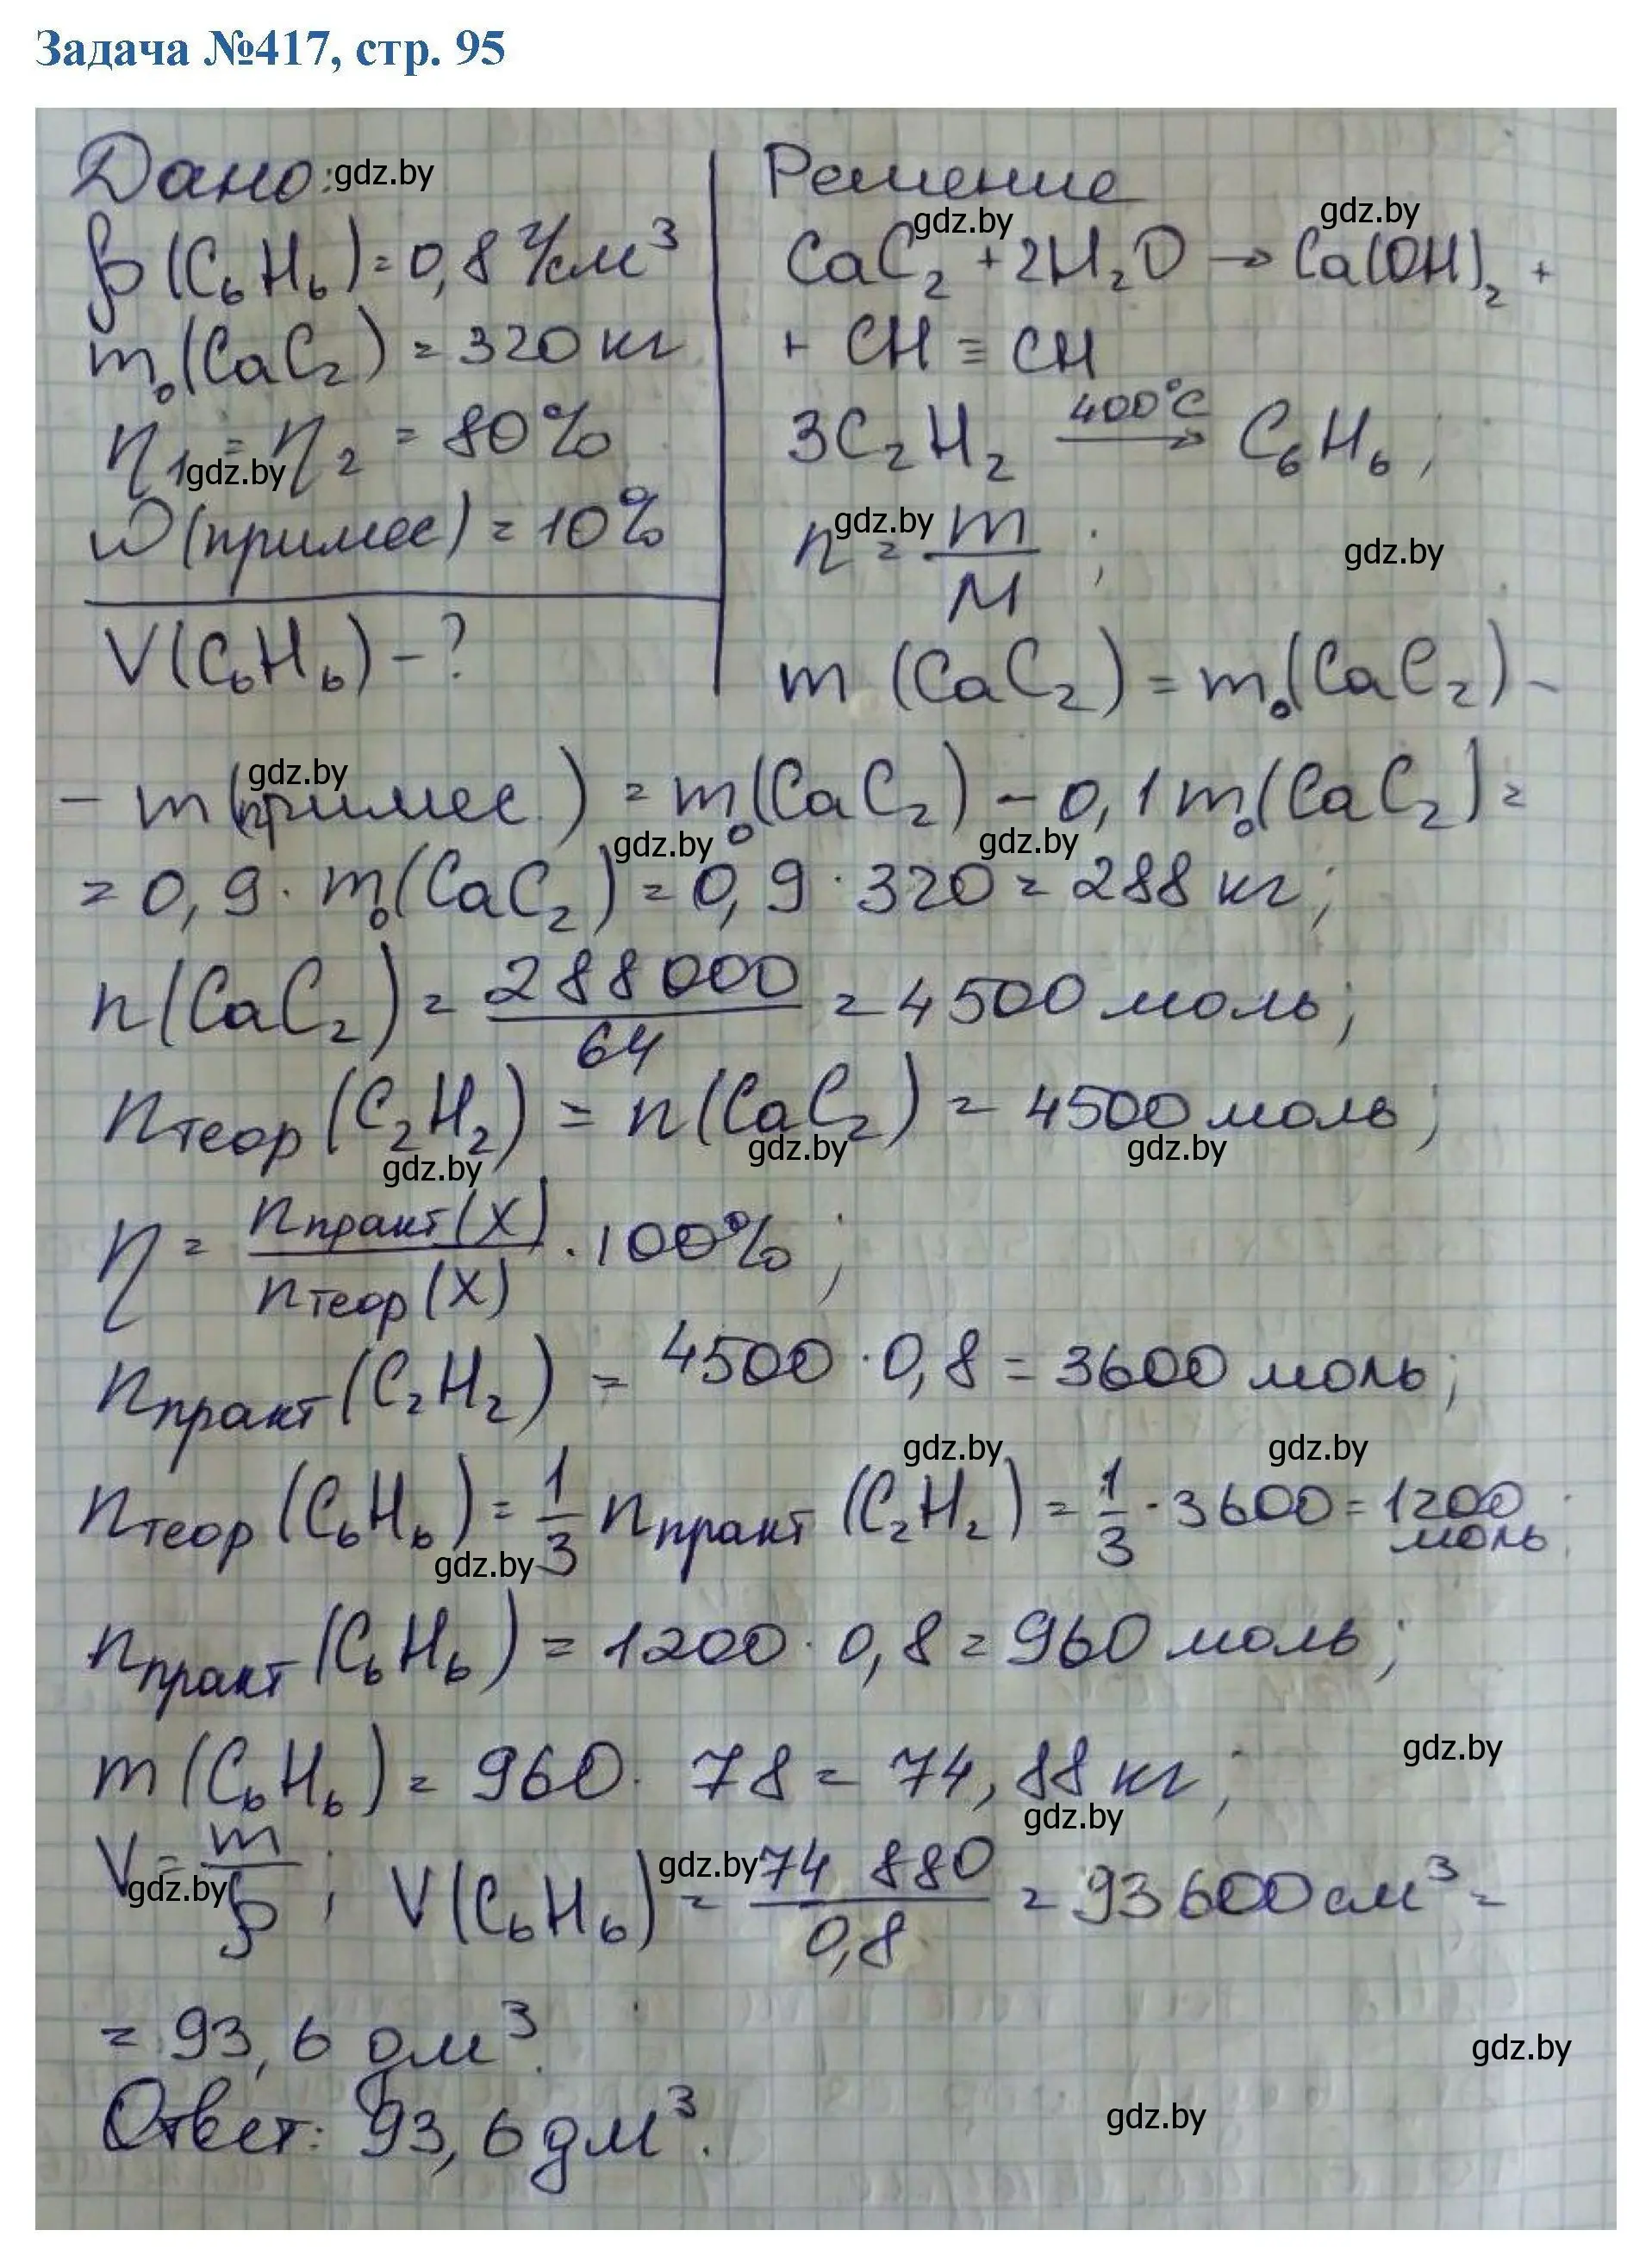 Задача №417, стр. 95
Дано: gdz.by
ρ(C₆H₆) = 0,8 г/см³
m₀(CaC₂) = 320 кг
η₁ = η₂ = 80%
gdz.by
ω(примес) = 10%
V(C₆H₆) - ?
Решение
gdz.by gdz.by
CaC₂ + 2H₂O → Ca(OH)₂ +
+ CH ≡ CH
3C₂H₂ 400°C → C₆H₆;
gdz.by
n = m/M;
gdz.by
m(CaC₂) = m₀(CaC₂) -
gdz.by
- m(примес.) = m₀(CaC₂) - 0,1m₀(CaC₂) =
gdz.by gdz.by
= 0,9 · m₀(CaC₂) = 0,9 · 320 = 288 кг;
n(CaC₂) = 288000/64 = 4500 моль;
nтеор(C₂H₂) = n(CaC₂) = 4500 моль;
gdz.by gdz.by gdz.by
η = nпракт(X)/nтеор(X) · 100%;
nпракт(C₂H₂) = 4500 · 0,8 = 3600 моль;
gdz.by gdz.by
nтеор(C₆H₆) = 1/3 nпракт(C₂H₂) = 1/3 · 3600 = 1200 моль;
gdz.by
nпракт(C₆H₆) = 1200 · 0,8 = 960 моль;
gdz.by
m(C₆H₆) = 960 · 78 = 74,88 кг;
gdz.by
V = m/ρ; V(C₆H₆) = 74 880/0,8 = 93600 см³ =
gdz.by gdz.by
= 93,6 дм³.
gdz.by
Ответ: 93,6 дм³.
gdz.by